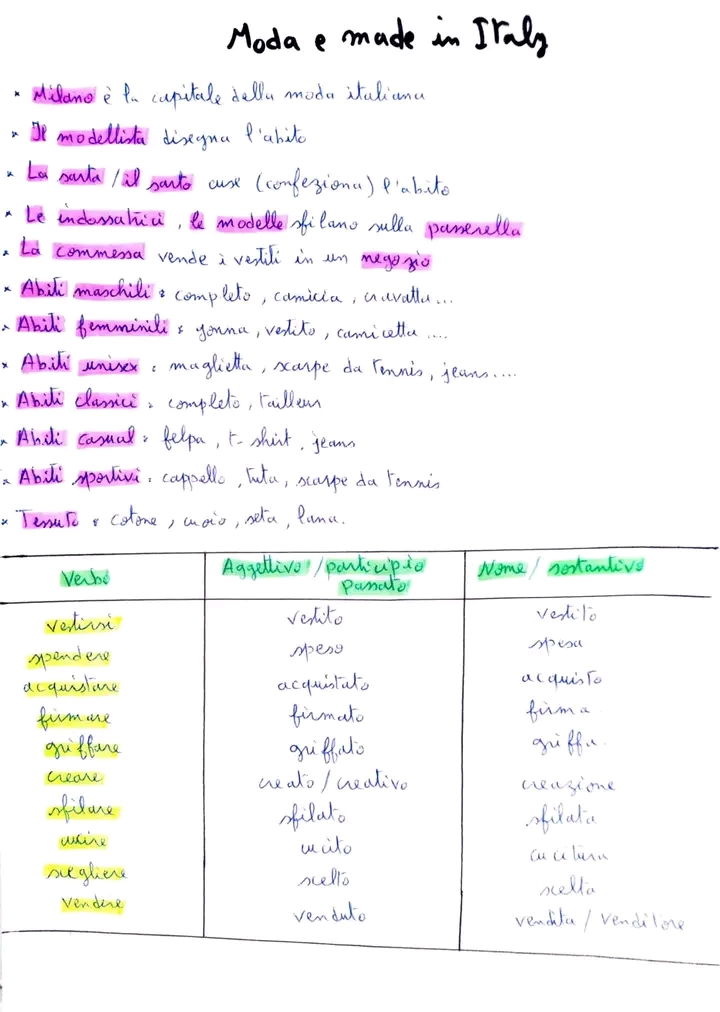 Moda e made in Italy
* Milano è la capitale della moda italiana
* Il modellista disegna l'abito
* La sarta / il sarto cuse (confeziona) l'abito
* Le indossatrici, le modelle sfilano sulla passerella
* La commessa vende i vestiti in un negozio
* Abiti maschili : completo, camicia, cravatta...
* Abiti femminili : gonna, vestito, camicetta ....
* Abiti unisex : maglietta, scarpe da tennis, jeans....
* Abiti classici : completo, tailleur
* Abiti casual : felpa, t-shirt, jeans
* Abiti sportivi : cappello, tuta, scarpe da tennis
* Tessuto : cotone, cuoio, seta, lana.
Verbo Aggettivo / participio passato Nome / sostantivo
vestirsi vestito vestito
spendere speso spesa
acquistare acquistato acquisto
firmare firmato firma
griffare griffato griffa
creare creato / creativo creazione
sfilare sfilato sfilata
cucire cucito cucitura
scegliere scelto scelta
vendere venduto vendita / venditore